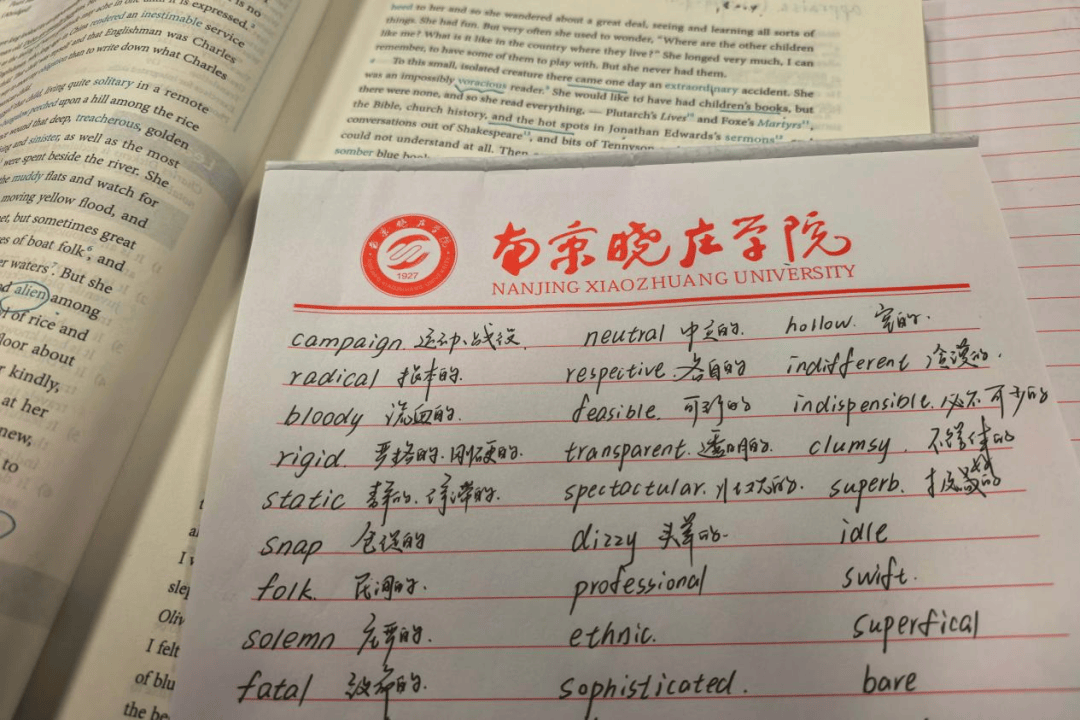 is no
until it is expressed.
rendered an inestimable service
and that Englishman was Charles
than to write down what Charles
living quite solitary in a remote
perched upon a hill among the rice
wound that deep, treacherous, golden
and sinister, as well as the most
were spent beside the river. She
the muddy flats and watch for
moving yellow flood, and
but sometimes great
of boat folk6, and
waters7. But she
alien among
of rice and
floor about
kindly,
at her
new,
to
heed to her and so she wandered about a great deal, seeing and learning all sorts of
things. She had fun. But very often she used to wonder, "Where are the other children
like me? What is it like in the country where they live?" She longed very much, I can
remember, to have some of them to play with. But she never had them.
To this small, isolated creature there came one day an extraordinary accident. She
was an impossibly voracious reader. She would like to have had children's books, but
there were none, and so she read everything, — Plutarch's Lives and Foxe's Martyrs,
the Bible, church history, and the hot spots in Jonathan Edwards's sermons
conversations out of Shakespeare, and bits of Tennyson
could not understand at all. Then
somber blue
南京晓庄学院
1927
南京晓庄学院
NANJING XIAOZHUANG UNIVERSITY
campaign 运动、战役 neutral 中立的. hollow. 空的.
radical 根本的. respective. 各自的 indifferent 冷漠的.
bloody 流血的. feasible. 可行的 indispensible. 必不可少的
rigid. 严格的.刚硬的. transparent. 透明的. clumsy.
static spectactular. 壮观的. superb.
snap 仓促的 dizzy 头晕的. idle
folk. 民间的. professional swift.
solemn 庄严的. ethnic. superfical
fatal 致命的. sophisticated. bare
I felt
of blu